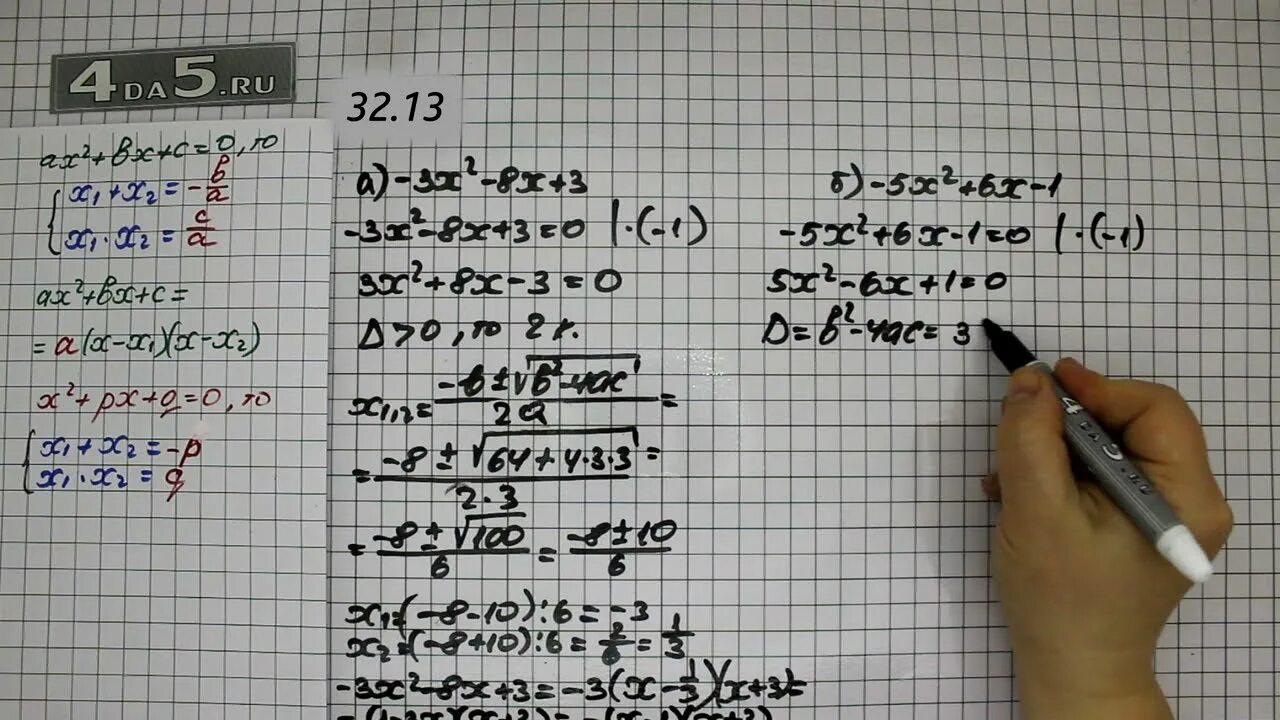 4DA5.RU
32.13
ax²+bx+c=0, то
x₁+x₂=-b/a
x₁·x₂=c/a
ax²+bx+c=
=a(x-x₁)(x-x₂)
x²+px+q=0, то
x₁+x₂=-p
x₁·x₂=q
а) -3x²-8x+3
-3x²-8x+3=0 |·(-1)
3x²+8x-3=0
D>0, то 2 к.
x₁,₂=(-b±√(b²-4ac))/(2a)=
=(-8±√(64+4·3·3))/(2·3)=
=(-8±√100)/6=(-8±10)/6
x₁=(-8-10):6=-3
x₂=(-8+10):6=2/6=1/3
-3x²-8x+3=-3(x-1/3)(x+3)=
б) -5x²+6x-1
-5x²+6x-1=0 |·(-1)
5x²-6x+1=0
D=b²-4ac=3
4DA5.RU